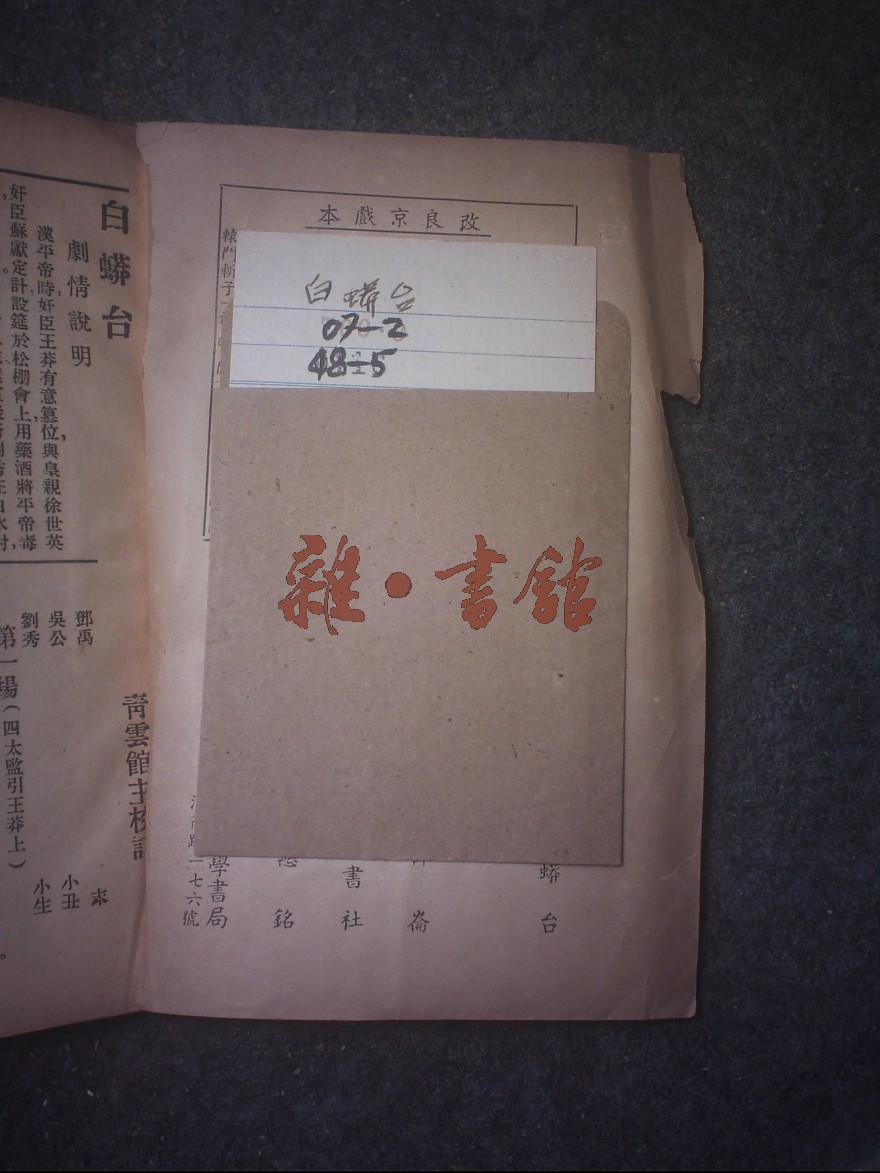 改良京戲本
轅門斬子
白蟒台
07-2
48-5
雜·書館
蟒台
崙
書社
銘
學書局
一七六號
青雲館主校訂
白蟒台
劇情說明
漢平帝時,奸臣王莽有意篡位,與皇親徐世英
奸臣蘇獻定計,設筵於松棚會上,用藥酒將平帝毒
鄧禹 末
吳公 小丑
劉秀 小生
第一場(四太監引王莽上)